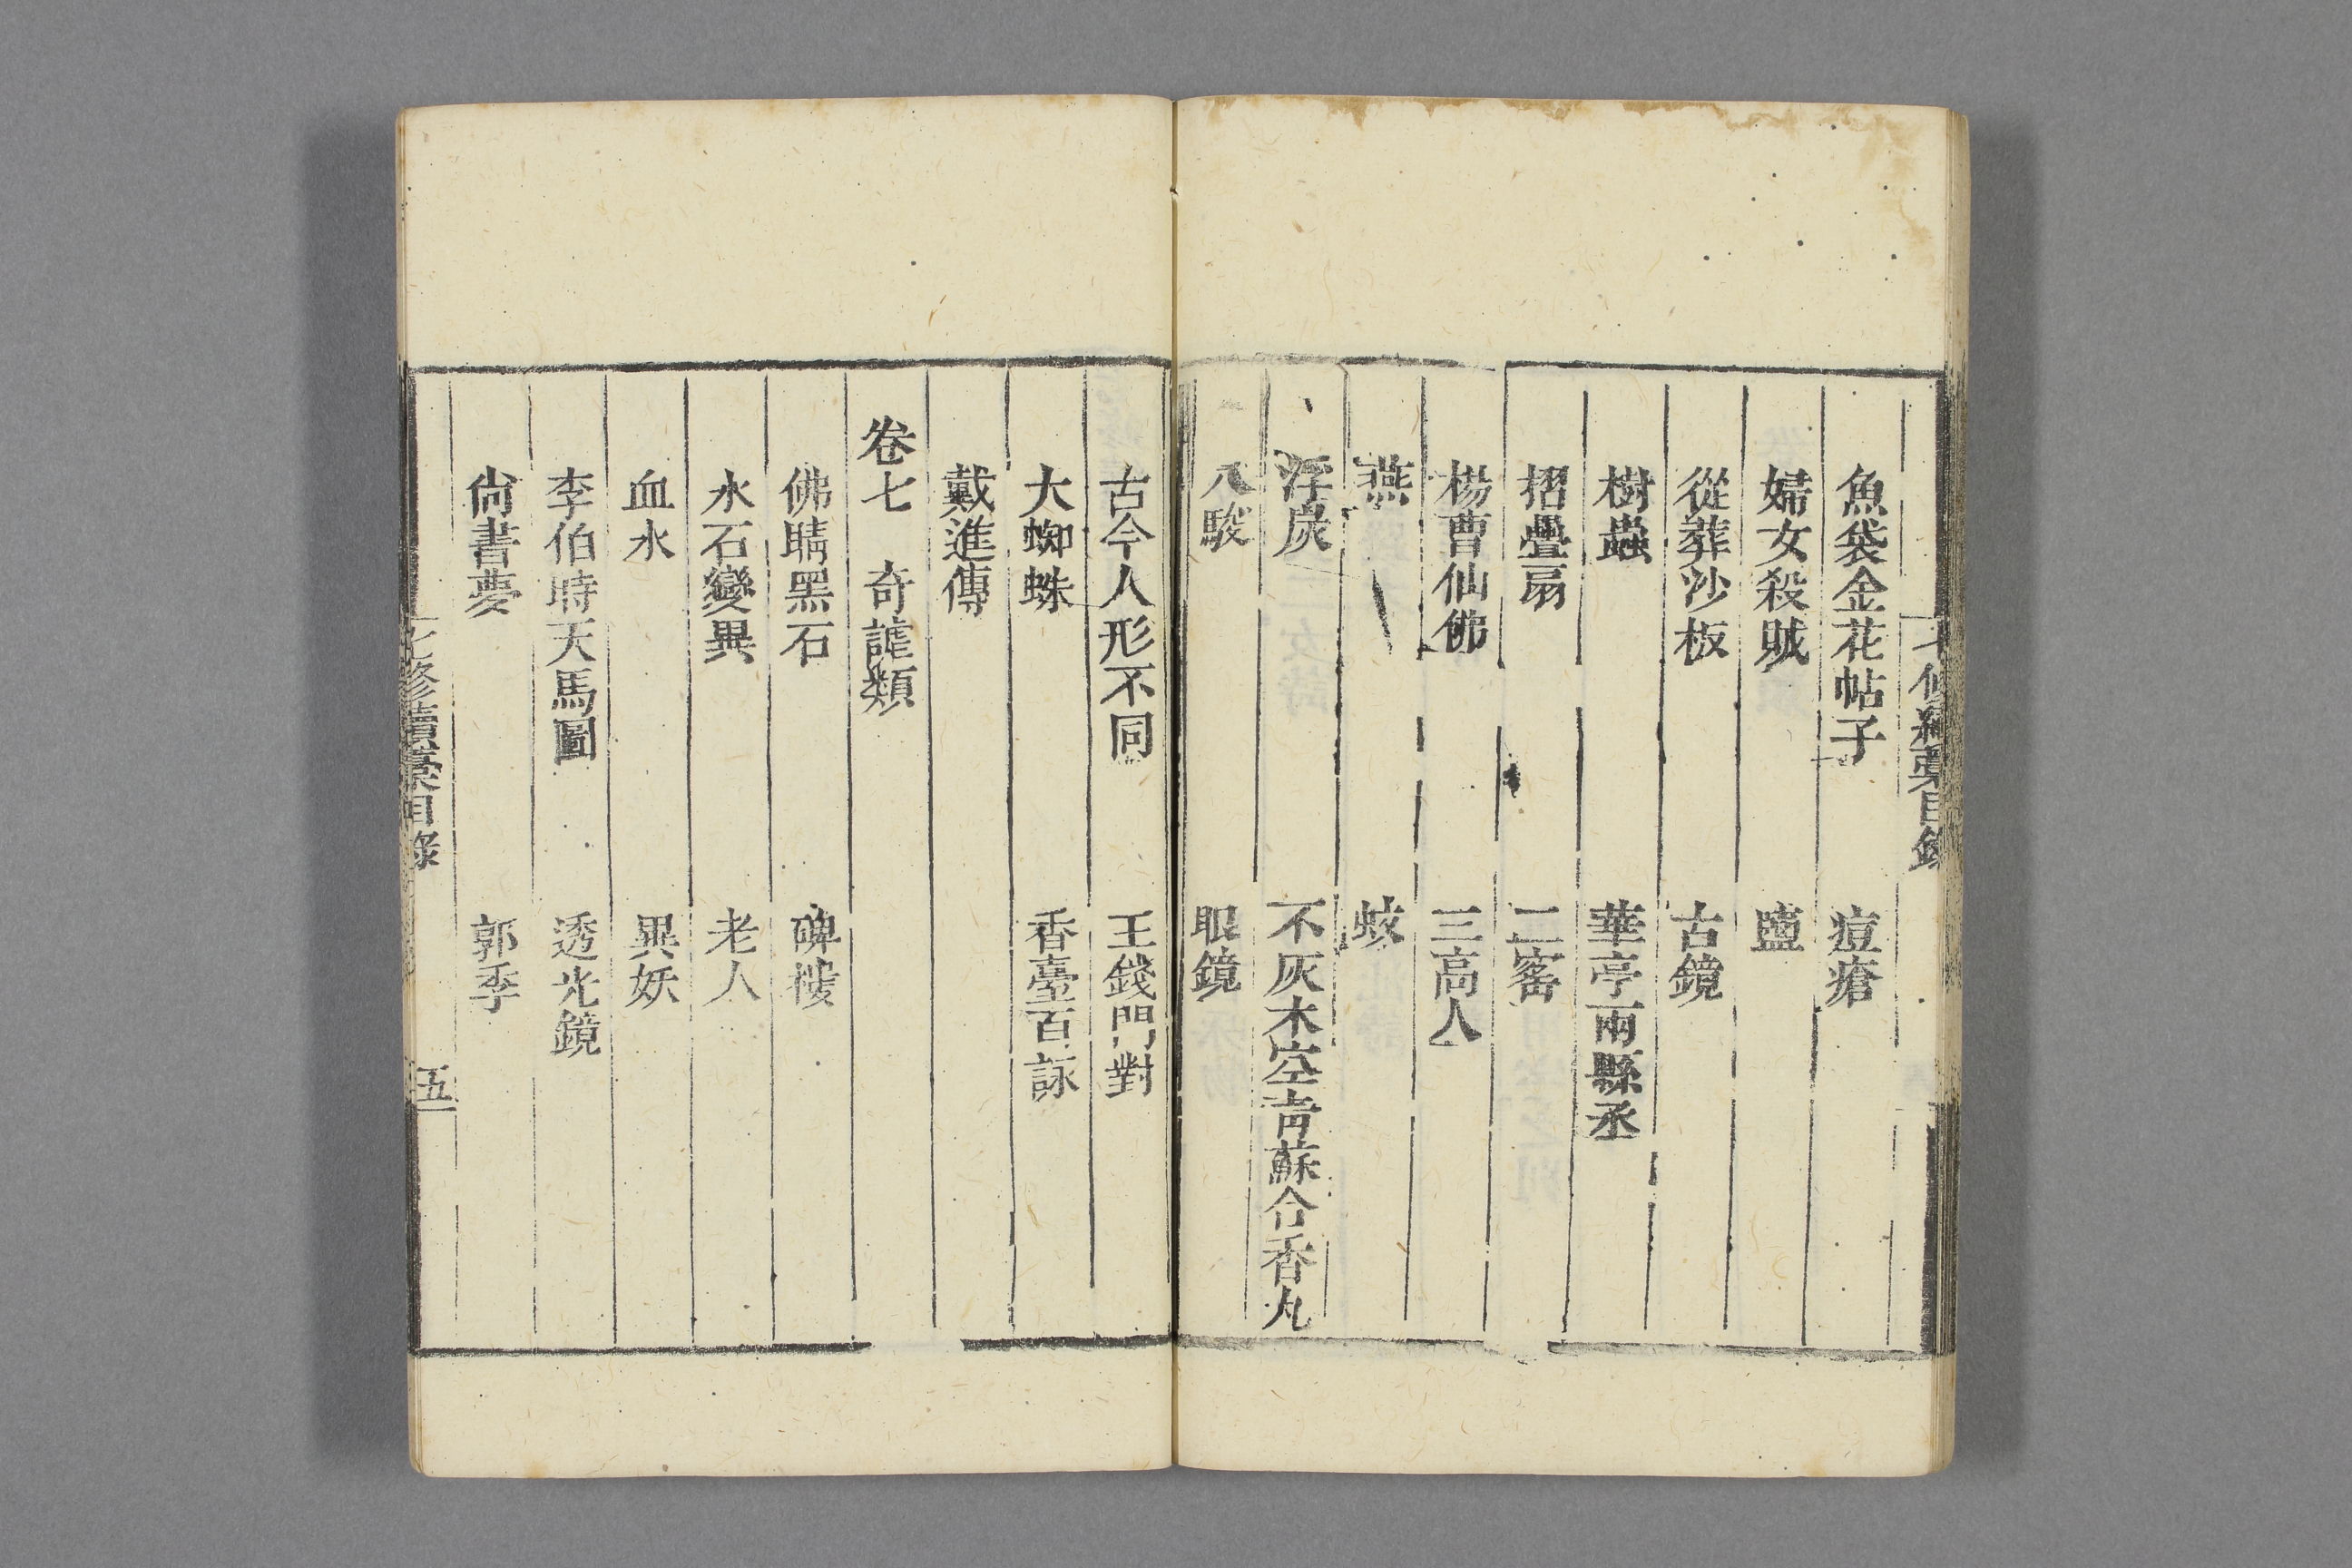 魚袋金花帖子　痘瘡
婦女殺賊　鹽
從葬沙板　古鏡
樹蟲　華亭兩縣丞
摺疊扇　二窰
楊曹仙佛　三高人
燕　蛟
浮炭　不灰木空青蘇合香丸
八駿　眼鏡
古今人形不同　王錢門對
大蜘蛛　香臺百詠
戴進傳
卷七　奇謔類
佛睛黑石　碑樓
水石變異　老人
血水　異妖
李伯時天馬圖　透光鏡
尚書夢　郭季
七修續藁目錄　五